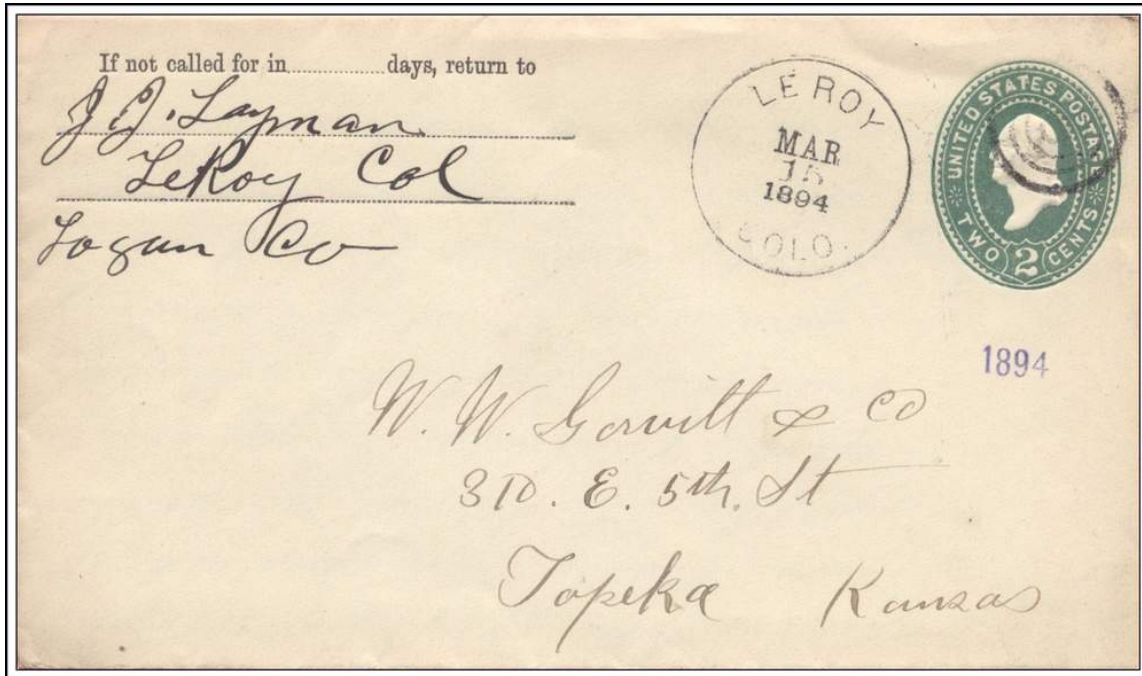 If not called for in............days, return to
J. J. Layman
LeRoy Col
Logan Co
LE ROY
MAR
15
1894
COLO.
UNITED STATES POSTAGE
TWO 2 CENTS
1894
W. W. & Co
310. E. 5th. St
Topeka Kansas